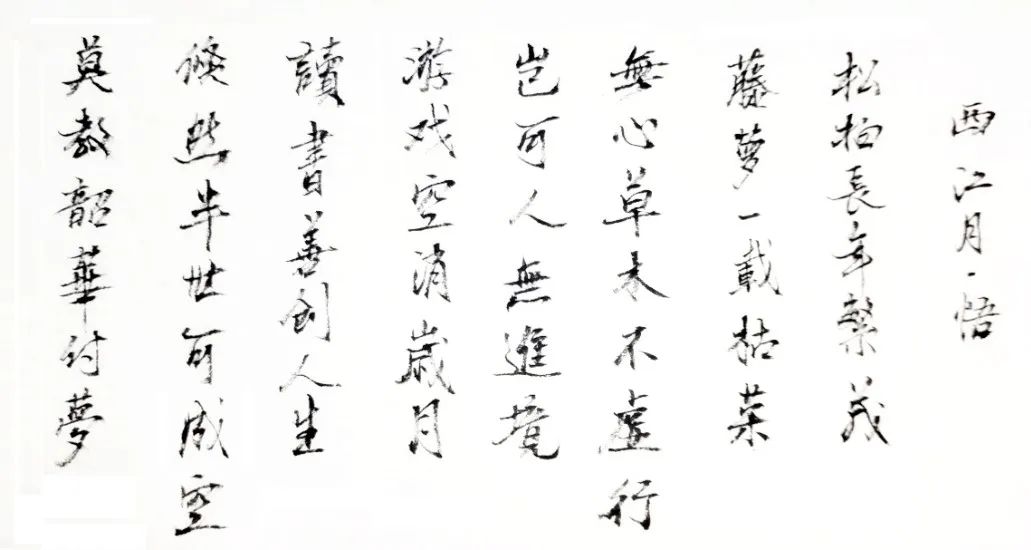 西江月·悟
松柏長年繁茂
藤萝一載枯荣
無心草木不虚行
岂可人無進境
游戏空消歲月
讀書善創人生
倏然半世可成空
莫教韶華付夢